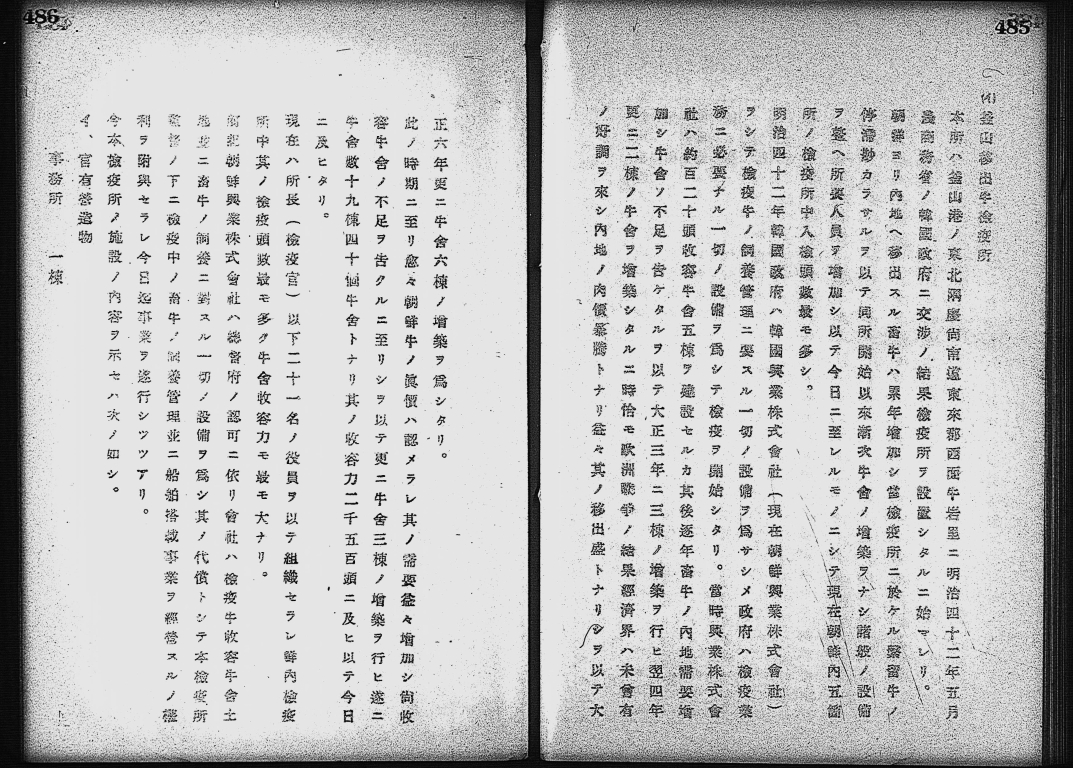 485
釜山移出牛檢疫所
本所ハ釜山港ノ東北隅慶尚南道東萊郡西面牛岩里ニ明治四十二年五月
農商務省ノ韓國政府ニ交渉ノ結果檢疫所ヲ設置シタルニ始マレリ。
朝鮮ヨリ內地ヘ移出スル畜牛ハ累年增加シ當檢疫所ニ於ケル繫留牛ノ
停滯尠カラサルヲ以テ同所開始以來漸次牛舍ノ增築ヲナシ諸般ノ設備
ヲ整ヘ所要人員ヲ增加シ以テ今日ニ至レルモノニシテ現在朝鮮內五箇
所ノ檢疫所中入檢頭數最モ多シ。
明治四十二年韓國政府ハ韓國興業株式會社(現在朝鮮興業株式會社)
ヲシテ檢疫牛ノ飼養管理ニ要スル一切ノ設備ヲ爲サシメ政府ハ檢疫業
務ニ必要ナル一切ノ設備ヲ爲シテ檢疫ヲ開始シタリ。當時興業株式會
社ハ約百二十頭收容牛舍五棟ヲ建設セルカ其後逐年畜牛ノ內地需要增
加シ牛舍ノ不足ヲ告ケタルヲ以テ大正三年ニ三棟ノ增築ヲ行ヒ翌四年
更ニ二棟ノ牛舍ヲ增築シタルニ時恰モ歐洲戰爭ノ結果經濟界ハ未曾有
ノ好調ヲ來シ內地ノ肉價暴騰トナリ益々其ノ移出盛トナリシヲ以テ大
486
正六年更ニ牛舍六棟ノ增築ヲ爲シタリ。
此ノ時期ニ至リ愈々朝鮮牛ノ眞價ハ認メラレ其ノ需要益々增加シ尙收
容牛舍ノ不足ヲ告クルニ至リシヲ以テ更ニ牛舍三棟ノ增築ヲ行ヒ遂ニ
牛舍數十九棟四十個牛舍トナリ其ノ收容力二千五百頭ニ及ヒ以テ今日
ニ及ヒタリ。
現在ハ所長(檢疫官)以下二十一名ノ役員ヲ以テ組織セラレ鮮內檢疫
所中其ノ檢疫頭數最モ多ク牛舍收容力モ最モ大ナリ。
前記朝鮮興業株式會社ハ總督府ノ認可ニ依リ會社ハ檢疫牛收容牛舍土
地並ニ畜牛ノ飼養ニ對スル一切ノ設備ヲ爲シ其ノ代償トシテ本檢疫所
監督ノ下ニ檢疫中ノ畜牛ノ飼養管理並ニ船舶搭載事業ヲ經營スルノ權
利ヲ附與セラレ今日迄事業ヲ遂行シツツアリ。
今本檢疫所ノ施設ノ內容ヲ示セハ次ノ如シ。
イ、官有營造物
事務所 一棟